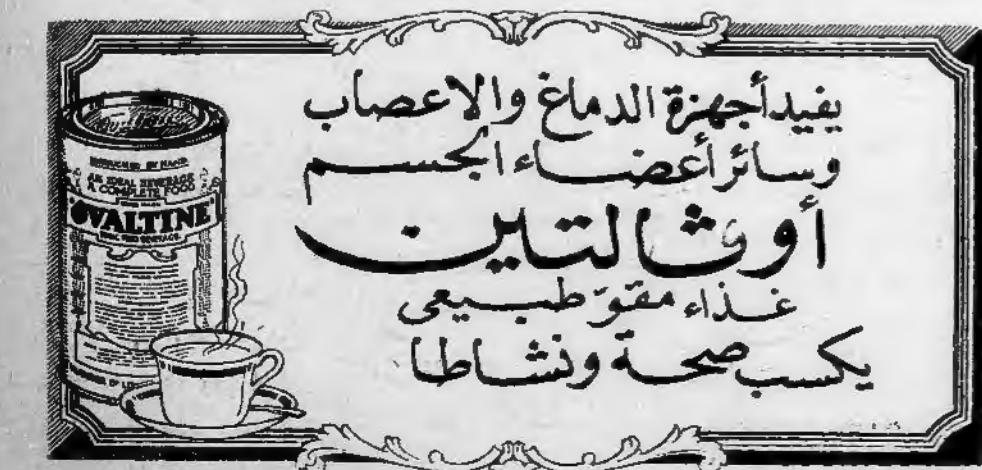 يفيد أجهزة الدماغ والاعصاب
وسائر أعضاء الجسم
أوڤالتين
غذاء مقوّ طبيعى
يكسب صحة ونشاطا
AN IDEAL BEVERAGE
A COMPLETE FOOD
OVALTINE